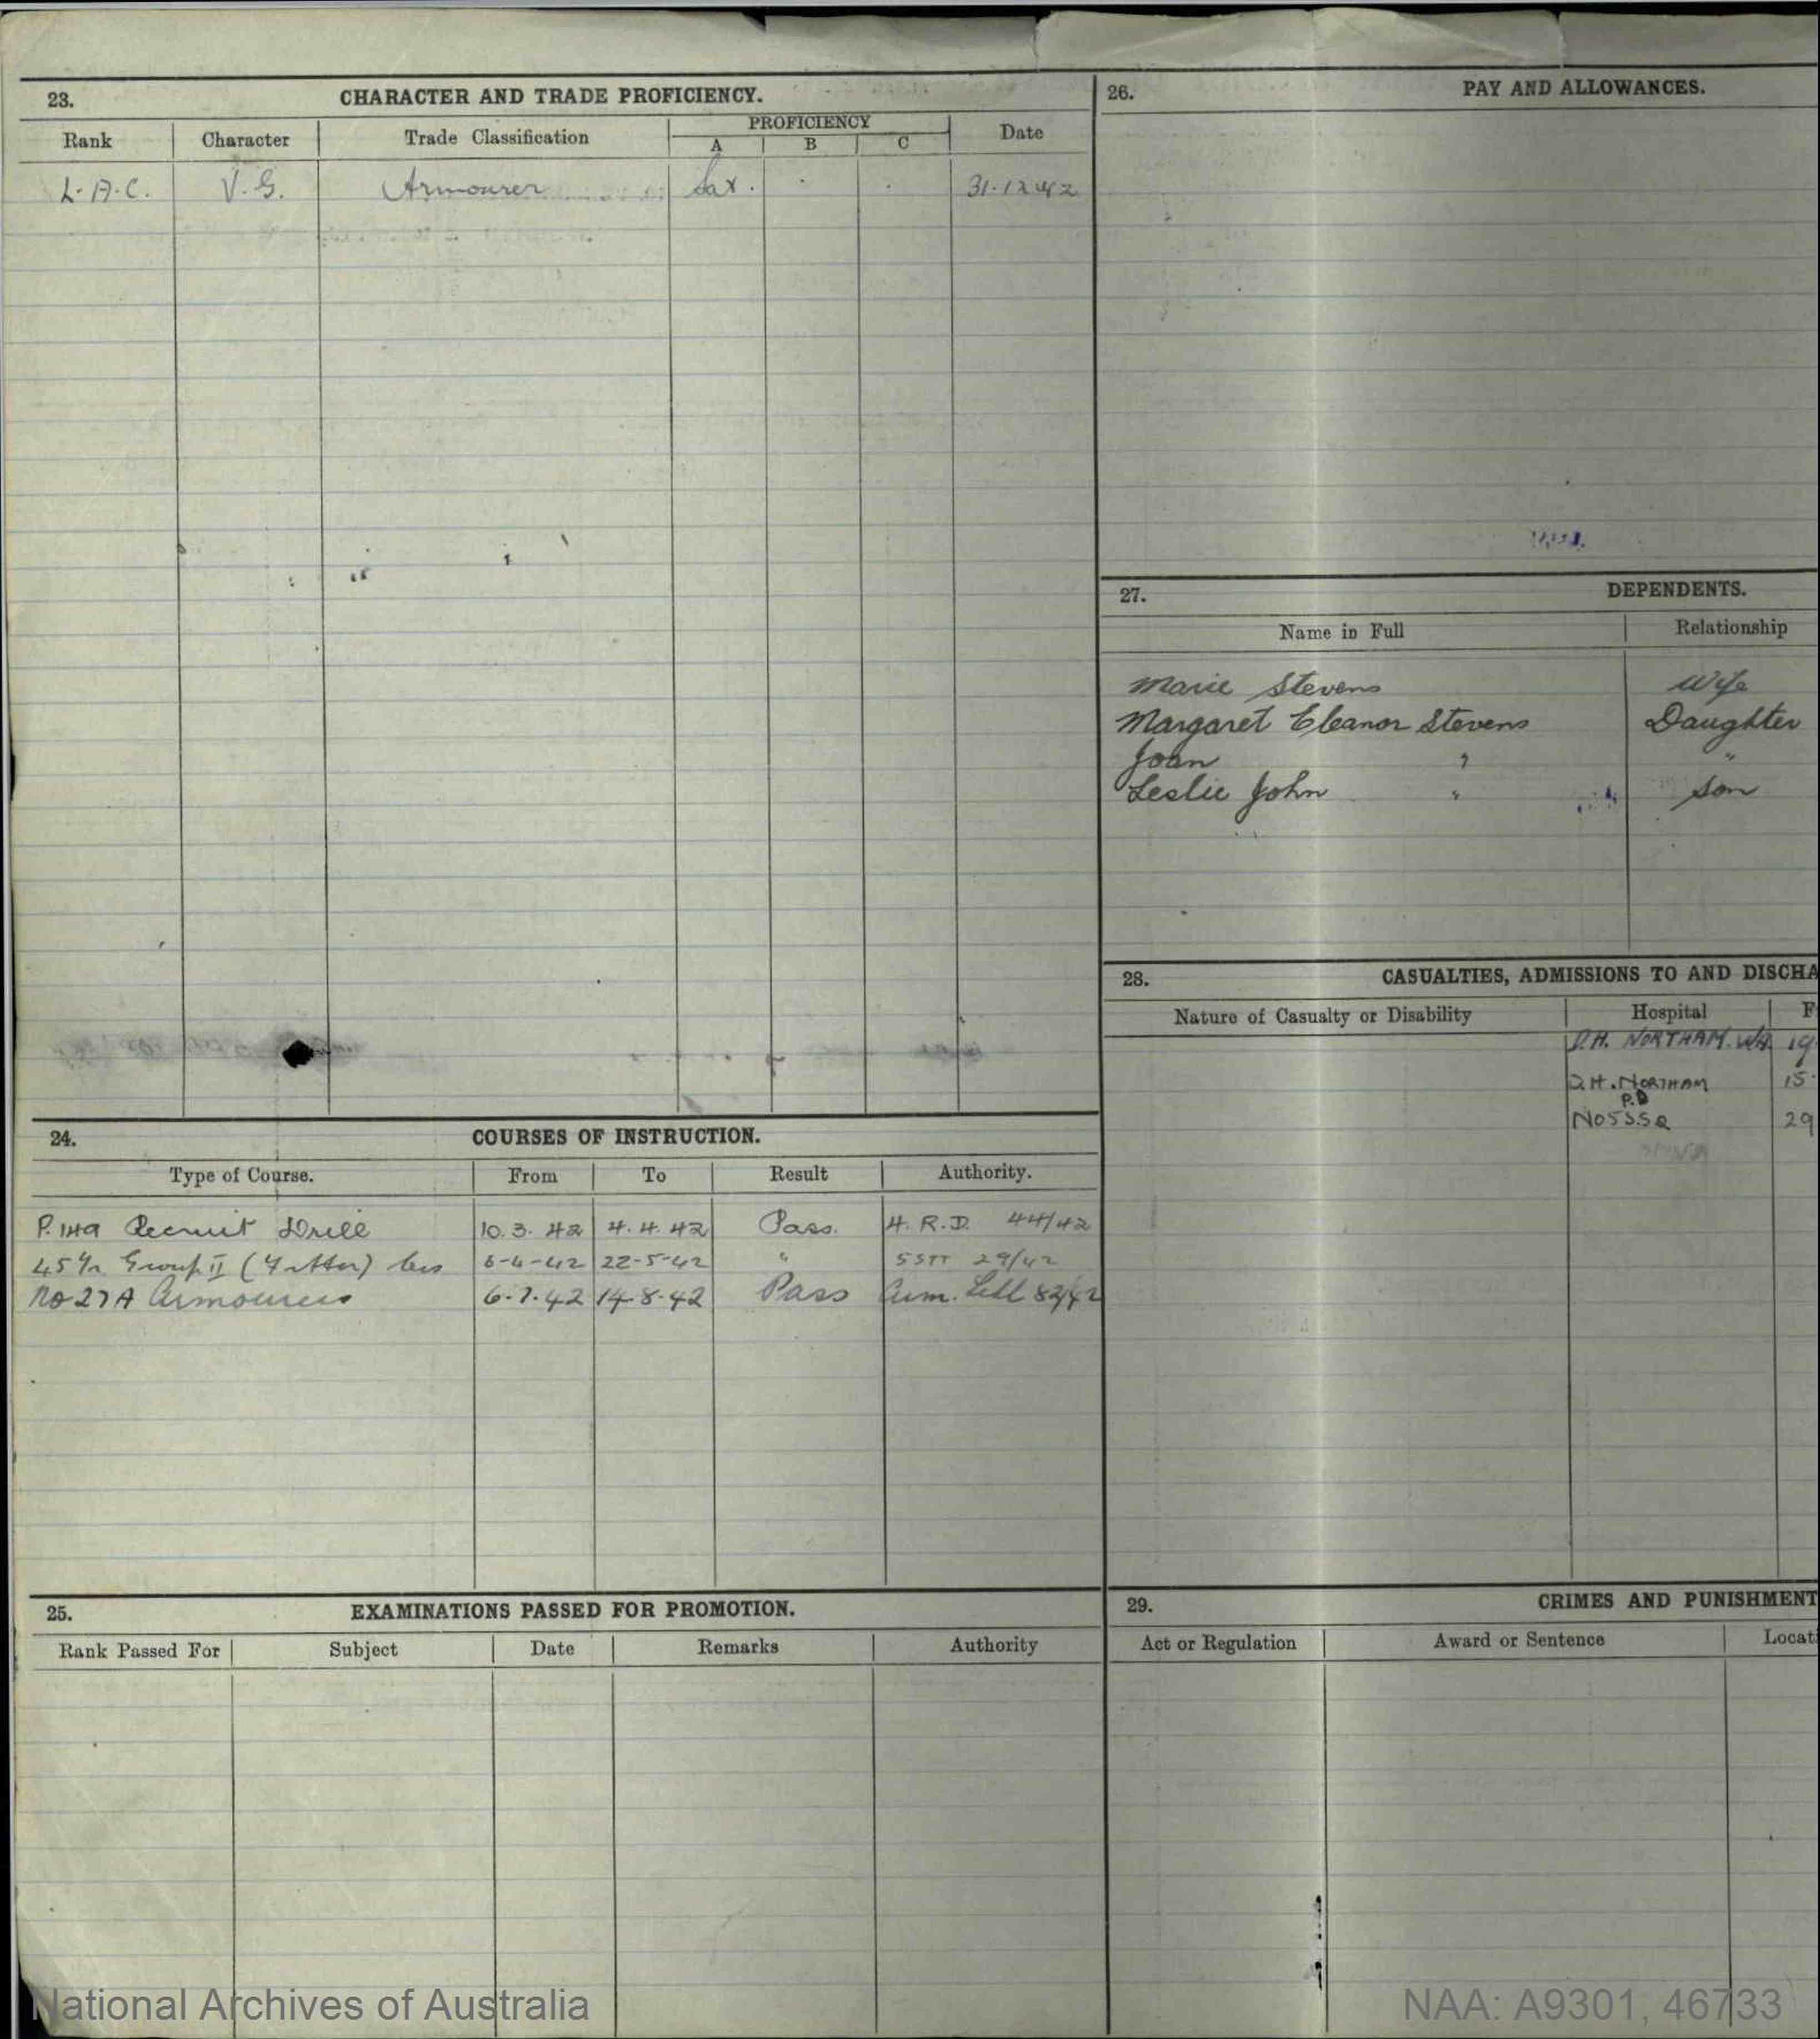 23. CHARACTER AND TRADE PROFICIENCY.
Rank Character Trade Classification PROFICIENCY Date
A B C
L.A.C. V.G. Armourer Sat. 31.12.42
24. COURSES OF INSTRUCTION.
Type of Course. From To Result Authority.
Recruit Drill 10.3.42 4.4.42 Pass. 4. R.D. 44/42
Group II (Fitter) 6-4-42 22-5-42 " 5STT 29/42
No 27A Armourers 6.7.42 14.8.42 Pass Arm. 82/42
25. EXAMINATIONS PASSED FOR PROMOTION.
Rank Passed For Subject Date Remarks Authority
26. PAY AND ALLOWANCES.
27. DEPENDENTS.
Name in Full Relationship
Marie Stevens Wife
Margaret Eleanor Stevens Daughter
Joan " "
Leslie John " Son
28. CASUALTIES, ADMISSIONS TO AND DISCHA
Nature of Casualty or Disability Hospital F
D.H. NORTHAM. WA. 19
D.H. NORTHAM 15
P.D
No5 S.S.Q 29
29. CRIMES AND PUNISHMENT
Act or Regulation Award or Sentence Locati
National Archives of Australia
NAA: A9301, 46733